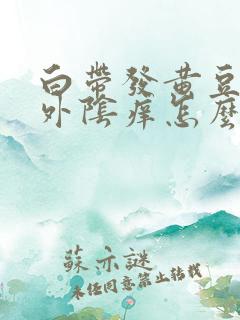 白帶發黃豆
外陰痒怎麼
蘇亦謎
未經同意禁止轉載